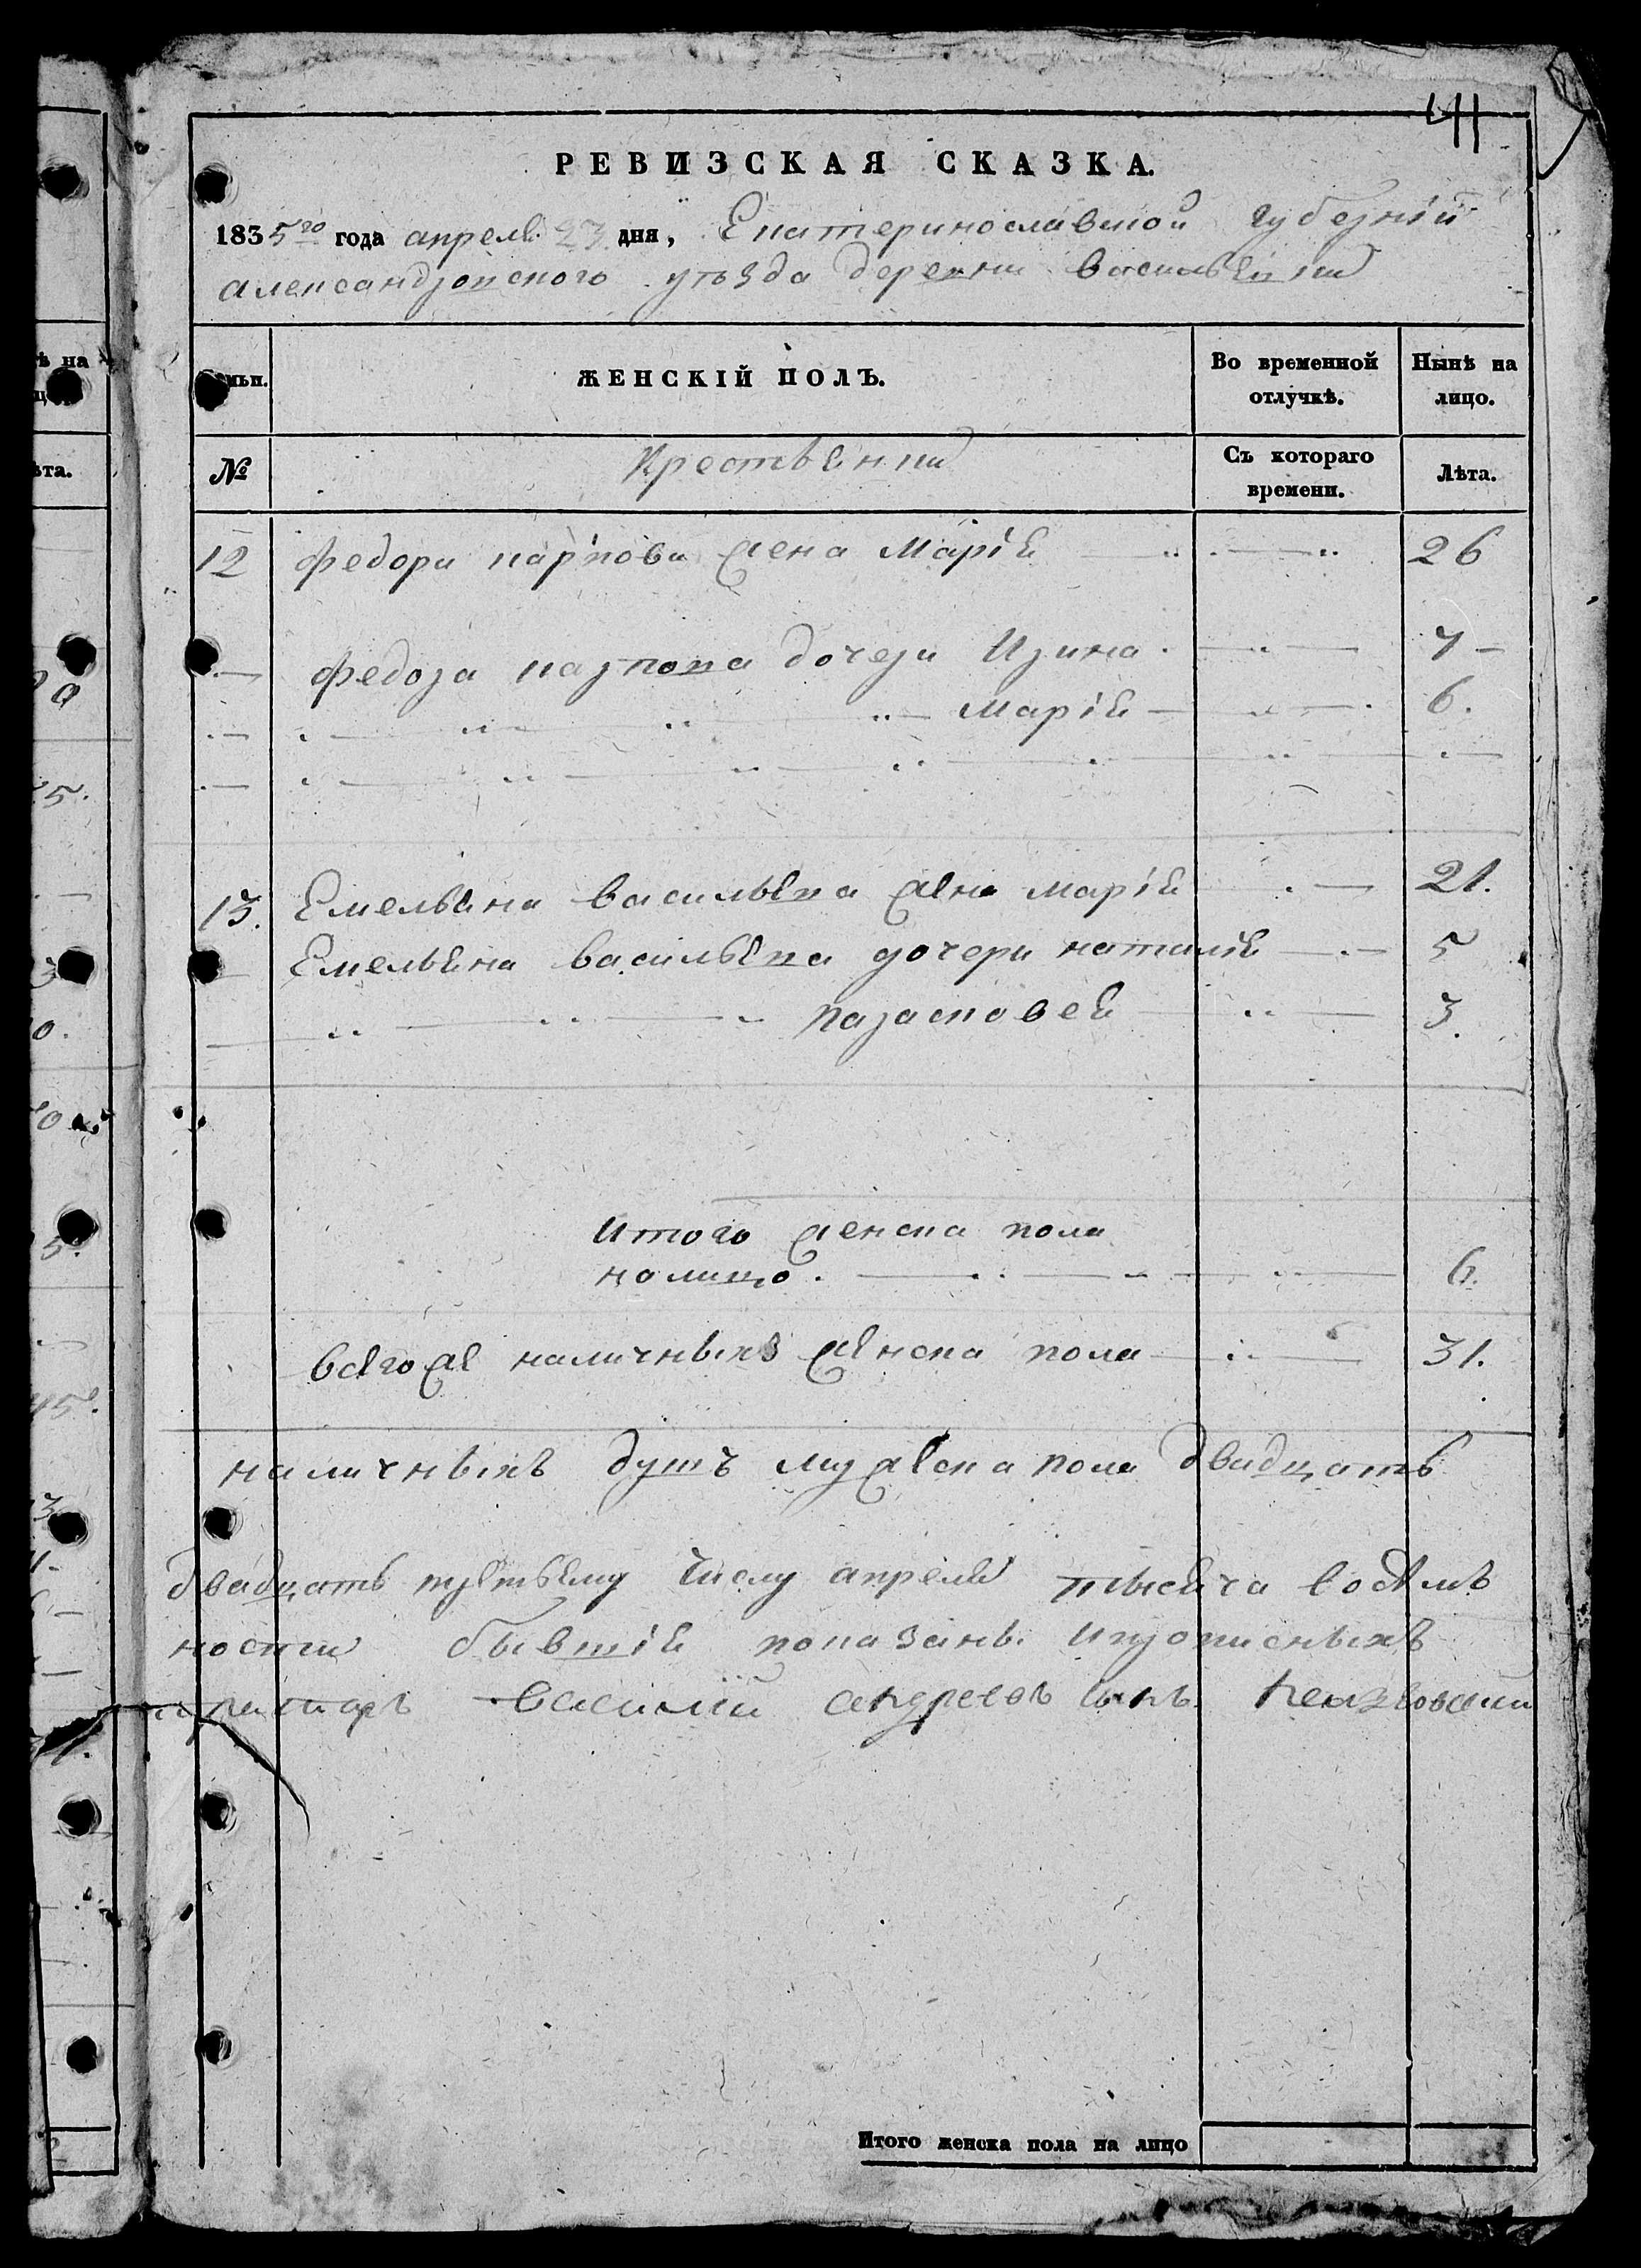 41
РЕВИЗСКАЯ СКАЗКА.
1835го года апреля 23 дня, Екатеринославской губерній
александровского уѣзда деревни васильевки
ЖЕНСКІЙ ПОЛЪ.
Во временной отлучкѣ.
Нынѣ на лицо.
№
Крестьянки
Съ котораго времени.
Лѣта.
12 федора карпова жена Марія 26
федора карпова дочери Ирина 7
Марія 6.
13. Емельяна васильева жена марія 21.
Емельяна васильева дочери наталія 5
парасковея 3.
Итого женска пола
налицо. 6.
всего же наличныхъ женска пола 31.
наличныхъ душъ мужеска пола двадцать
двадцать третьему числу апреля тысяча восемь
бывшія показаны ипрописныхъ
василій андреевъ сынъ
Итого женска пола на лицо